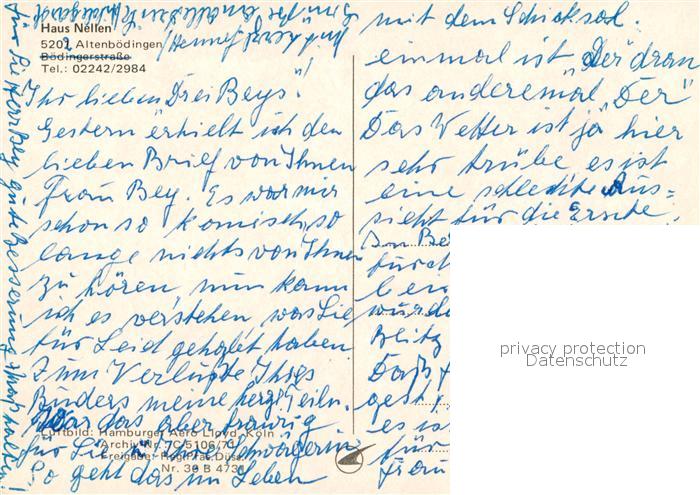 Haus Nelfen
5202 Altenbödingen
Bödingerstraße
Tel.: 02242/2984
Ihr lieben Drei Beys!
Gestern erhielt ich den
lieben Brief von Ihnen
Frau Bey. Es war mir
schon so komisch, so
lange nichts von Ihnen
zu hören, nun kann
ich es verstehen was Sie
für Leid gehabt haben
Zum Verluste Ihres
Buders meine herzl. Teiln.
War das aber traurig
für Sie u. Ihre Schwägerin
So geht das im Leben
mit dem Schicksal.
einmal ist "Der" dran
das anderemal "Der"
Das Wetter ist ja hier
sehr trübe es ist
eine schlechte Aus-
sicht für die Ernte.
Im Be
furch
ben
wurde
Blitz
Daß
gest
es ist
für
Frau
Für Sie Herr Bey gute Besserung
Luftbild: Hamburger Aero Lloyd, Köln
Archiv Nr. 7C 5106/71
Freigabe: Reg. Präs. Düss.
Nr. 38 B 4731
privacy protection
Datenschutz